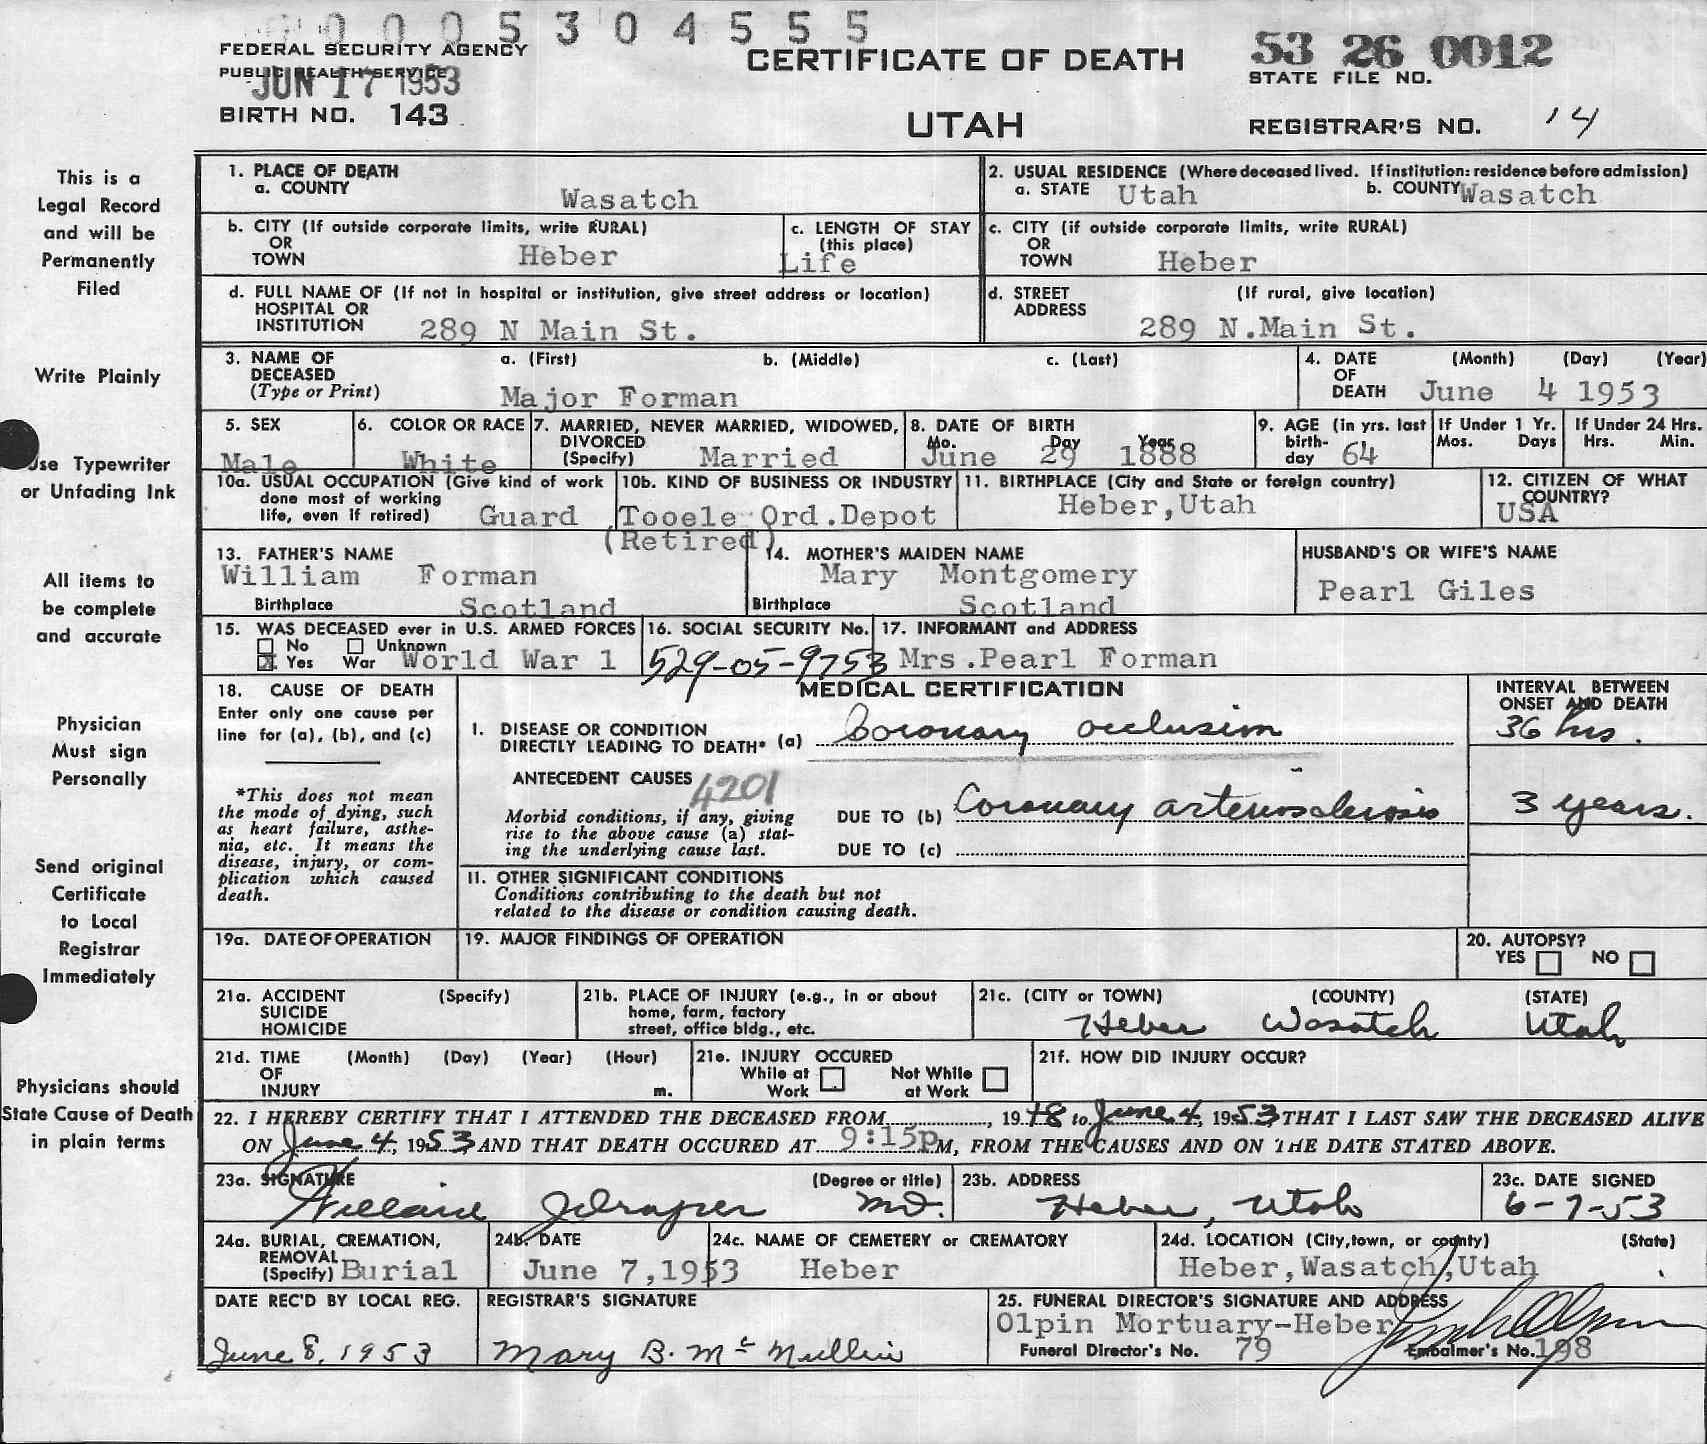 0005304555
FEDERAL SECURITY AGENCY
PUBLIC HEALTH SERVICE
JUN 17 1953
BIRTH NO. 143
CERTIFICATE OF DEATH
UTAH
53 26 0012
STATE FILE NO.
REGISTRAR'S NO. 14
This is a
Legal Record
and will be
Permanently
Filed
Write Plainly
Use Typewriter
or Unfading Ink
All items to
be complete
and accurate
Physician
Must sign
Personally
Send original
Certificate
to Local
Registrar
Immediately
Physicians should
State Cause of Death
in plain terms
1. PLACE OF DEATH
a. COUNTY Wasatch
2. USUAL RESIDENCE (Where deceased lived. If institution: residence before admission)
a. STATE Utah b. COUNTY Wasatch
b. CITY (If outside corporate limits, write RURAL)
OR
TOWN Heber
c. LENGTH OF STAY
(this place)
Life
c. CITY (if outside corporate limits, write RURAL)
OR
TOWN Heber
d. FULL NAME OF (If not in hospital or institution, give street address or location)
HOSPITAL OR
INSTITUTION 289 N Main St.
d. STREET (If rural, give location)
ADDRESS 289 N.Main St.
3. NAME OF a. (First) b. (Middle) c. (Last)
DECEASED
(Type or Print) Major Forman
4. DATE (Month) (Day) (Year)
OF
DEATH June 4 1953
5. SEX
Male
6. COLOR OR RACE
White
7. MARRIED, NEVER MARRIED, WIDOWED,
DIVORCED
(Specify) Married
8. DATE OF BIRTH
Mo. Day Year
June 29 1888
9. AGE (in yrs. last
birth-
day 64
If Under 1 Yr.
Mos. Days
If Under 24 Hrs.
Hrs. Min.
10a. USUAL OCCUPATION (Give kind of work
done most of working
life, even if retired) Guard
10b. KIND OF BUSINESS OR INDUSTRY
Tooele Ord.Depot
(Retired)
11. BIRTHPLACE (City and State or foreign country)
Heber,Utah
12. CITIZEN OF WHAT
COUNTRY?
USA
13. FATHER'S NAME
William Forman
Birthplace Scotland
14. MOTHER'S MAIDEN NAME
Mary Montgomery
Birthplace Scotland
HUSBAND'S OR WIFE'S NAME
Pearl Giles
15. WAS DECEASED ever in U.S. ARMED FORCES
No Unknown
X Yes War World War 1
16. SOCIAL SECURITY No.
529-05-9753
17. INFORMANT and ADDRESS
Mrs.Pearl Forman
18. CAUSE OF DEATH
Enter only one cause per
line for (a), (b), and (c)
*This does not mean
the mode of dying, such
as heart failure, asthe-
nia, etc. It means the
disease, injury, or com-
plication which caused
death.
MEDICAL CERTIFICATION
INTERVAL BETWEEN
ONSET AND DEATH
I. DISEASE OR CONDITION
DIRECTLY LEADING TO DEATH* (a) Coronary occlusion 36 hrs.
ANTECEDENT CAUSES 4201
Morbid conditions, if any, giving
rise to the above cause (a) stat-
ing the underlying cause last.
DUE TO (b) Coronary arteriosclerosis 3 years.
DUE TO (c)
II. OTHER SIGNIFICANT CONDITIONS
Conditions contributing to the death but not
related to the disease or condition causing death.
19a. DATE OF OPERATION
19. MAJOR FINDINGS OF OPERATION
20. AUTOPSY?
YES NO
21a. ACCIDENT (Specify)
SUICIDE
HOMICIDE
21b. PLACE OF INJURY (e.g., in or about
home, farm, factory
street, office bldg., etc.
21c. (CITY or TOWN) (COUNTY) (STATE)
Heber Wasatch Utah
21d. TIME (Month) (Day) (Year) (Hour)
OF
INJURY m.
21e. INJURY OCCURED
While at Not While
Work at Work
21f. HOW DID INJURY OCCUR?
22. I HEREBY CERTIFY THAT I ATTENDED THE DECEASED FROM , 1948 to June 4, 1953 THAT I LAST SAW THE DECEASED ALIVE
ON June 4, 1953 AND THAT DEATH OCCURED AT 9:15p M, FROM THE CAUSES AND ON THE DATE STATED ABOVE.
23a. SIGNATURE (Degree or title)
MD.
23b. ADDRESS
Heber, Utah
23c. DATE SIGNED
6-7-53
24a. BURIAL, CREMATION,
REMOVAL
(Specify) Burial
24b. DATE
June 7,1953
24c. NAME OF CEMETERY or CREMATORY
Heber
24d. LOCATION (City,town, or county) (State)
Heber,Wasatch,Utah
DATE REC'D BY LOCAL REG.
June 8, 1953
REGISTRAR'S SIGNATURE
Mary B. McMullin
25. FUNERAL DIRECTOR'S SIGNATURE AND ADDRESS
Olpin Mortuary-Heber
Funeral Director's No. 79 Embalmer's No. 198